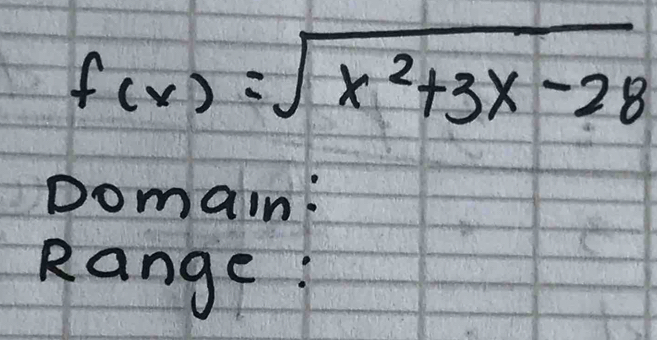 f(x) = √x²+3x-28
Domain:
Range: